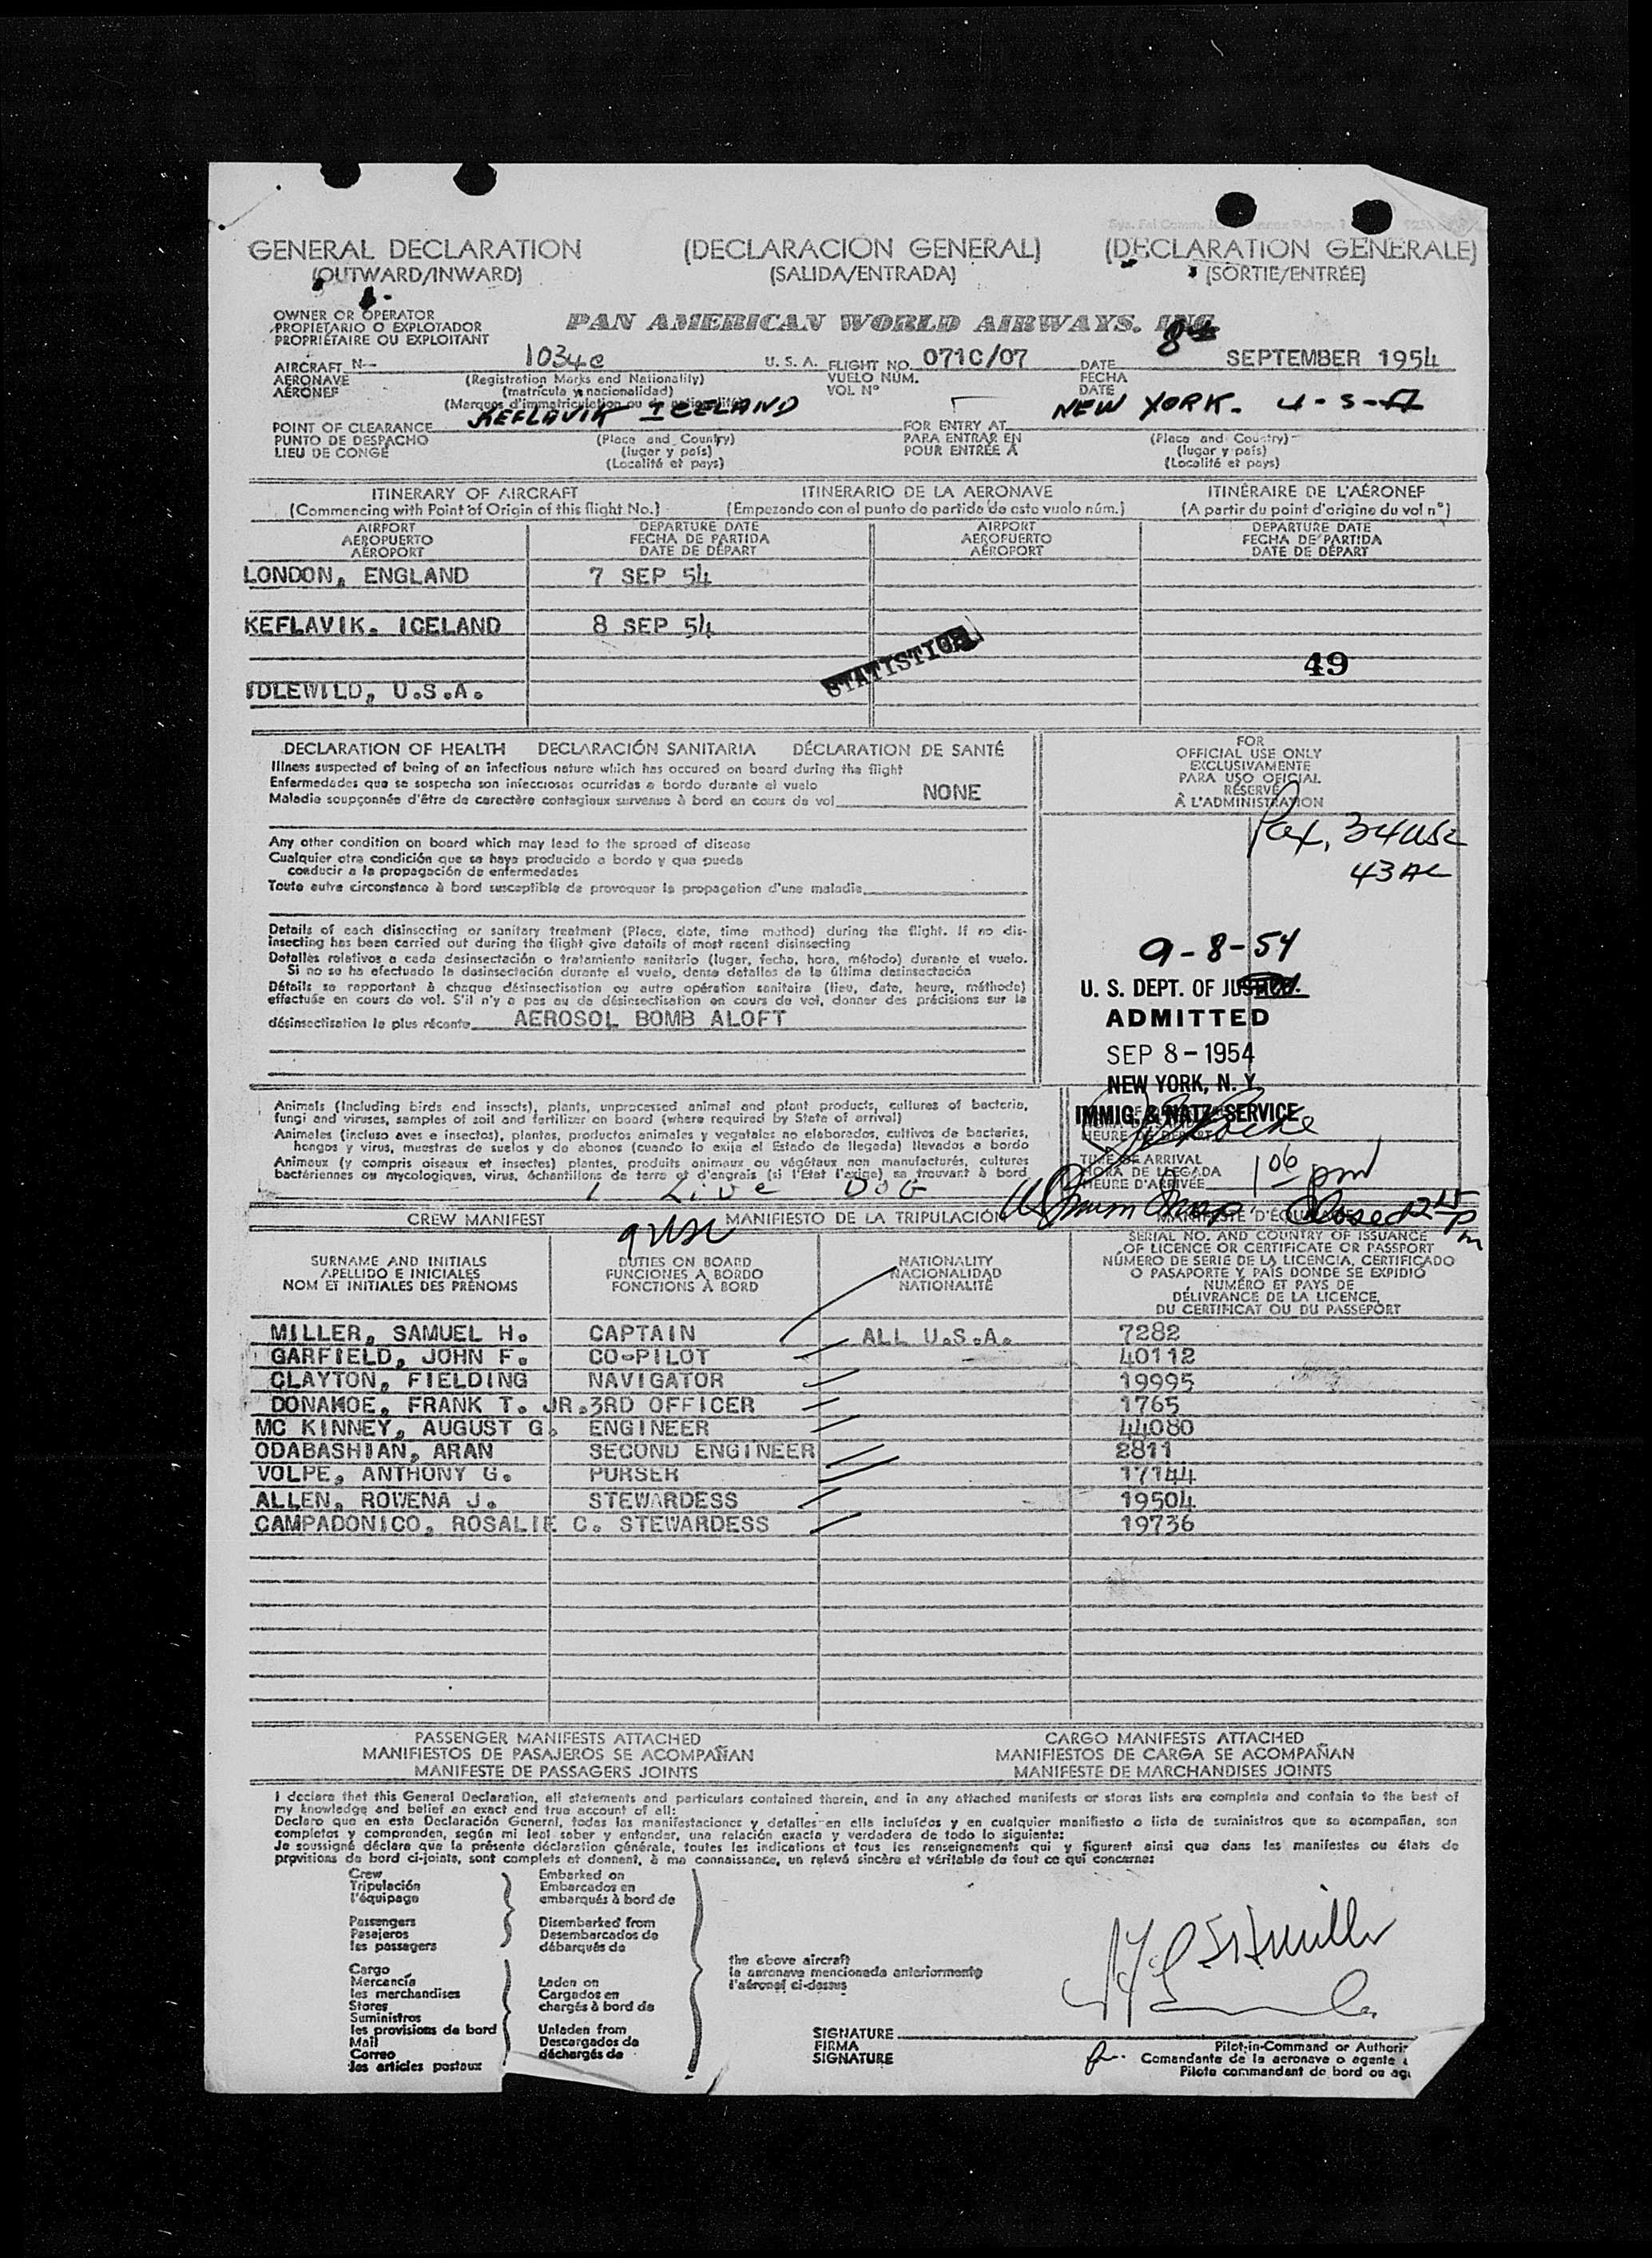 GENERAL DECLARATION (DECLARACIÓN GENERAL) (DÉCLARATION GÉNÉRALE)
(OUTWARD/INWARD) (SALIDA/ENTRADA) (SORTIE/ENTRÉE)
OWNER OR OPERATOR
PROPIETARIO O EXPLOTADOR
PROPRIÉTAIRE OU EXPLOITANT
PAN AMERICAN WORLD AIRWAYS, INC.
AIRCRAFT N-- 1034C U.S.A. FLIGHT NO. 071C/07 DATE 8 SEPTEMBER 1954
AERONAVE (Registration Marks and Nationality) VUELO NÚM. FECHA
AÉRONEF (matrícula y nacionalidad) VOL Nº DATE
(Marques d'immatriculation ou de nationalité)
POINT OF CLEARANCE KEFLAVIK ICELAND FOR ENTRY AT NEW YORK. U-S-A
PUNTO DE DESPACHO (Place and Country) PARA ENTRAR EN (Place and Country)
LIEU DE CONGÉ (lugar y país) POUR ENTRÉE À (lugar y país)
(Localité et pays) (Localité et pays)
ITINERARY OF AIRCRAFT ITINERARIO DE LA AERONAVE ITINÉRAIRE DE L'AÉRONEF
(Commencing with Point of Origin of this flight No.) (Empezando con el punto de partida de este vuelo núm.) (A partir du point d'origine du vol nº)
AIRPORT DEPARTURE DATE AIRPORT DEPARTURE DATE
AEROPUERTO FECHA DE PARTIDA AEROPUERTO FECHA DE PARTIDA
AÉROPORT DATE DE DÉPART AÉROPORT DATE DE DÉPART
LONDON, ENGLAND 7 SEP 54
KEFLAVIK. ICELAND 8 SEP 54
STATISTICS
49
IDLEWILD, U.S.A.
DECLARATION OF HEALTH DECLARACIÓN SANITARIA DÉCLARATION DE SANTÉ
Illness suspected of being of an infectious nature which has occured on board during the flight
Enfermedades que se sospecha son infecciosas ocurridas a bordo durante el vuelo
Maladie soupçonnée d'être de caractère contagieux survenue à bord en cours de vol NONE
Any other condition on board which may lead to the spread of disease
Cualquier otra condición que se haya producido a bordo y que pueda
conducir a la propagación de enfermedades
Toute autre circonstance à bord susceptible de provoquer la propagation d'une maladie
Details of each disinsecting or sanitary treatment (Place, date, time method) during the flight. If no dis-
insecting has been carried out during the flight give details of most recent disinsecting
Detalles relativos a cada desinsectación o tratamiento sanitario (lugar, fecha, hora, método) durante el vuelo.
Si no se ha efectuado la desinsectación durante el vuelo, dense detalles de la última desinsectación
Détails se rapportant à chaque désinsectisation ou autre opération sanitaire (lieu, date, heure, méthode)
effectuée en cours de vol. S'il n'y a pas eu de désinsectisation en cours de vol, donner des précisions sur la
désinsectisation la plus récente AEROSOL BOMB ALOFT
FOR
OFFICIAL USE ONLY
EXCLUSIVAMENTE
PARA USO OFICIAL
RÉSERVÉ
À L'ADMINISTRATION
Pax, 34 USC
43 AL
9-8-54
U. S. DEPT. OF JUSTICE
ADMITTED
SEP 8 - 1954
NEW YORK, N. Y.
IMMIG. & NATZ. SERVICE
HEURE DE DÉPART
TIME OF ARRIVAL
HORA DE LLEGADA 1 06 pm
HEURE D'ARRIVÉE
Animals (Including birds and insects), plants, unprocessed animal and plant products, cultures of bacteria,
fungi and viruses, samples of soil and fertilizer on board (where required by State of arrival)
Animales (incluso aves e insectos), plantas, productos animales y vegetales no elaborados, cultivos de bacterias,
hongos y virus, muestras de suelos y de abonos (cuando lo exija el Estado de llegada) llevados a bordo
Animaux (y compris oiseaux et insectes) plantes, produits animaux ou végétaux non manufacturés, cultures
bactériennes ou mycologiques, virus, échantillons de terre et d'engrais (si l'État l'exige) se trouvant à bord
1 Live DOG
Closed 2 15 pm
CREW MANIFEST MANIFIESTO DE LA TRIPULACIÓN MANIFESTE D'ÉQUIPAGE
9 USC
SURNAME AND INITIALS DUTIES ON BOARD NATIONALITY SERIAL NO. AND COUNTRY OF ISSUANCE
APELLIDO E INICIALES FUNCIONES A BORDO NACIONALIDAD OF LICENCE OR CERTIFICATE OR PASSPORT
NOM ET INITIALES DES PRÉNOMS FONCTIONS À BORD NATIONALITÉ NÚMERO DE SERIE DE LA LICENCIA, CERTIFICADO
O PASAPORTE Y PAÍS DONDE SE EXPIDIÓ
NUMÉRO ET PAYS DE
DÉLIVRANCE DE LA LICENCE,
DU CERTIFICAT OU DU PASSEPORT
MILLER, SAMUEL H. CAPTAIN ALL U.S.A. 7282
GARFIELD, JOHN F. CO-PILOT 40112
CLAYTON, FIELDING NAVIGATOR 19995
DONAHOE, FRANK T. JR. 3RD OFFICER 1765
MC KINNEY, AUGUST G. ENGINEER 44080
ODABASHIAN, ARAN SECOND ENGINEER 2811
VOLPE, ANTHONY G. PURSER 17144
ALLEN, ROWENA J. STEWARDESS 19504
CAMPADONICO, ROSALIE C. STEWARDESS 19736
PASSENGER MANIFESTS ATTACHED CARGO MANIFESTS ATTACHED
MANIFIESTOS DE PASAJEROS SE ACOMPAÑAN MANIFIESTOS DE CARGA SE ACOMPAÑAN
MANIFESTE DE PASSAGERS JOINTS MANIFESTE DE MARCHANDISES JOINTS
I declare that this General Declaration, all statements and particulars contained therein, and in any attached manifests or stores lists are complete and contain to the best of
my knowledge and belief an exact and true account of all:
Declaro que en esta Declaración General, todas las manifestaciones y detalles en ella incluídos y en cualquier manifiesto o lista de suministros que se acompañan, son
completos y comprenden, según mi leal saber y entender, una relación exacta y verdadera de todo lo siguiente:
Je soussigné déclare que la présente déclaration générale, toutes les indications et tous les renseignements qui y figurent ainsi que dans les manifestes ou états de
provisions de bord ci-joints, sont complets et donnent, à ma connaissance, un relevé sincère et véritable de tout ce qui concerne:
Crew Embarked on
Tripulación Embarcados en
l'équipage embarqués à bord de
Passengers Disembarked from
Pasajeros Desembarcados de
les passagers débarqués de
the above aircraft
la aeronave mencionada anteriormente
l'aéronef ci-dessus
Cargo
Mercancía Laden on
les merchandises Cargados en
Stores chargés à bord de
Suministros
les provisions de bord Unladen from
Mail Descargados de
Correo déchargés de
les articles postaux
S H Miller
SIGNATURE
FIRMA Pilot-in-Command or
SIGNATURE Comandante de la aeronave o agente
Pilote commandant de bord ou